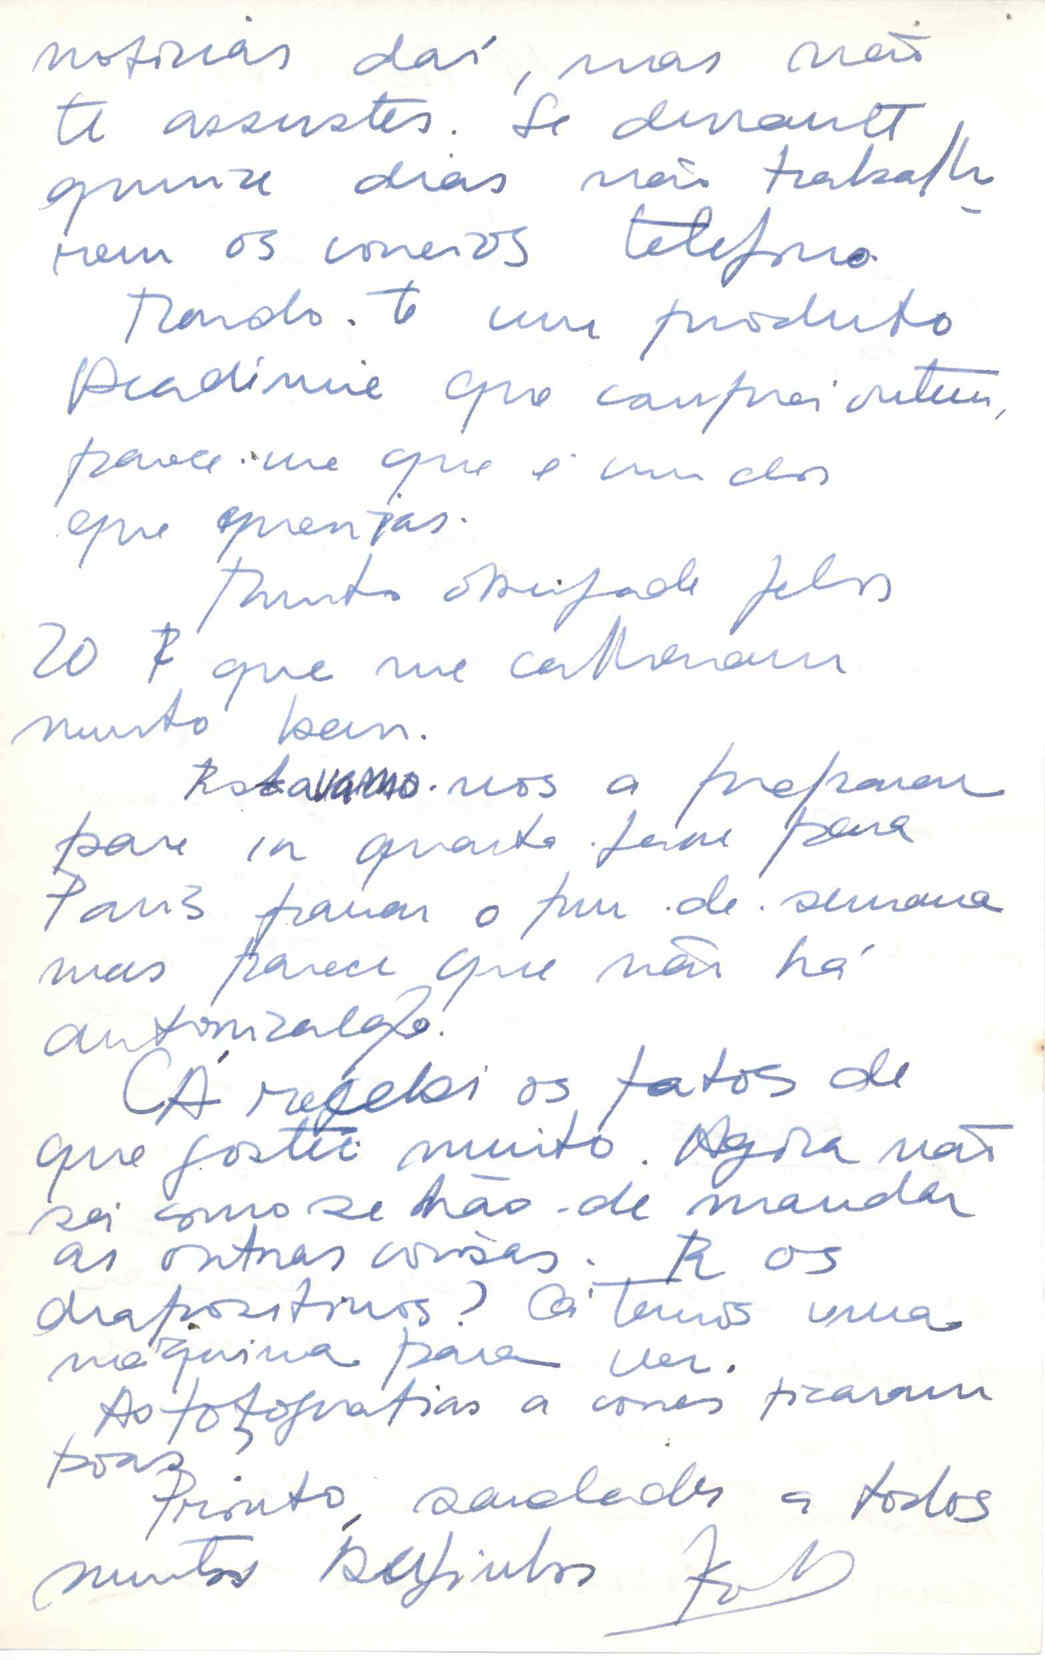 notícias daí, mas não
te assustes. Se durante
quinze dias não trabalha-
rem os correios telefono.
Mando-te um produto
que comprei ontem,
parece-me que é um dos
que querias.
Muito obrigado pelos
20 F que me calharam
muito bem.
Estavamo-nos a preparar
para ir quarta-feira para
Paris passar o fim-de-semana
mas parece que não há
autorização.
CÁ recebi os fatos de
que gostei muito. Agora não
sei como se hão-de mandar
as outras coisas. E os
diapositivos? Cá temos uma
máquina para ver.
As fotografias a cores ficaram
boas.
Pronto, saudades a todos
muitos beijinhos